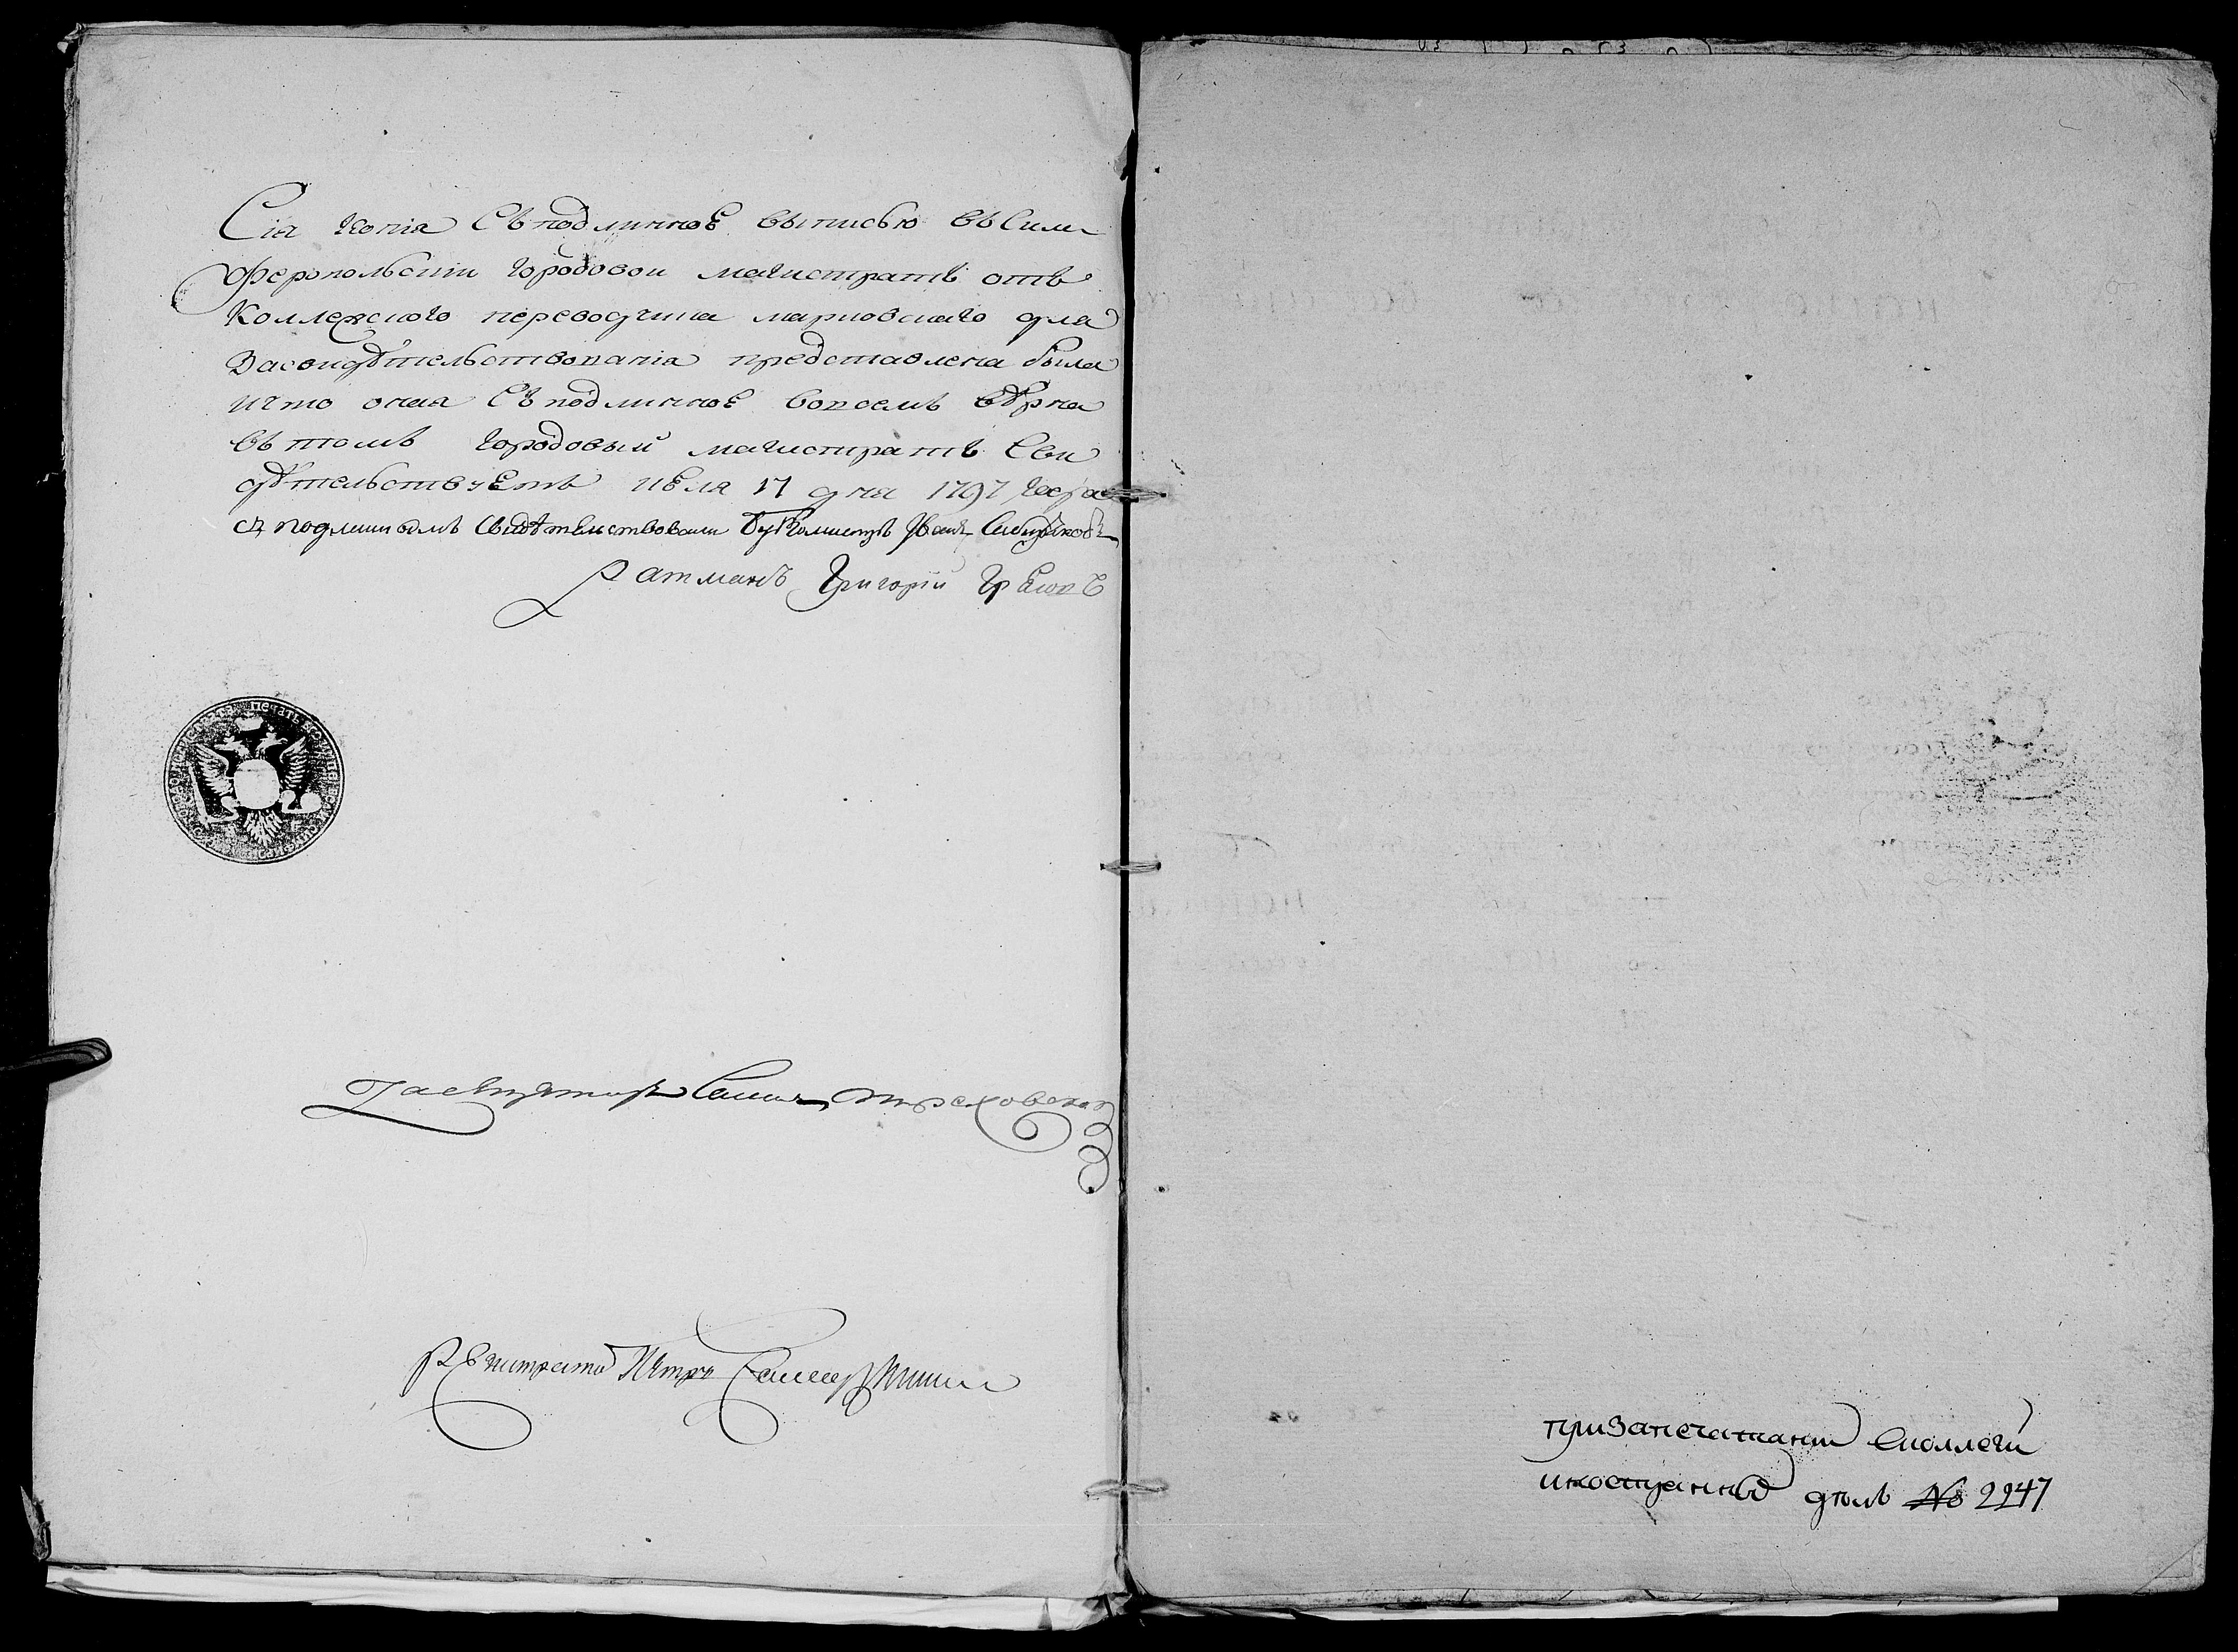 Сія копія съ подлинноѣ выписью въ Сим
феропольски городовои магистратъ отъ
Коллежского переводчика марковскаго для
Засвидѣтельствованія представлена была
ичто оная съ подлинноѣ вовсемъ вѣрна
въ томъ городовый магистратъ Сви
дѣтельствуетъ июля 17 дня 1797 года
съ подлиннымъ Свидѣтельствовали Бургомистръ Иванъ
Ратманъ Григорій
печать
Петръ
при запечатании Сколлеги
иностранныхъ делъ № 2247